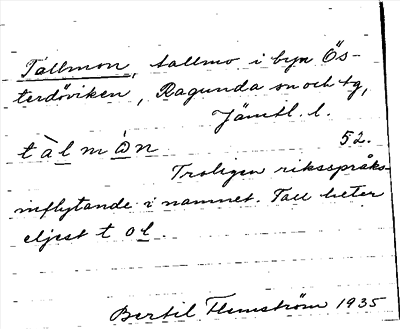 Tallmon, tallmo i byn Ös-
terdöviken, Ragunda sn och tg,
Jämtl. l.
tàlmòn 52.
Troligen riksspråks-
inflytande i namnet. Tall heter
eljest tol.
Bertil Flemström 1935